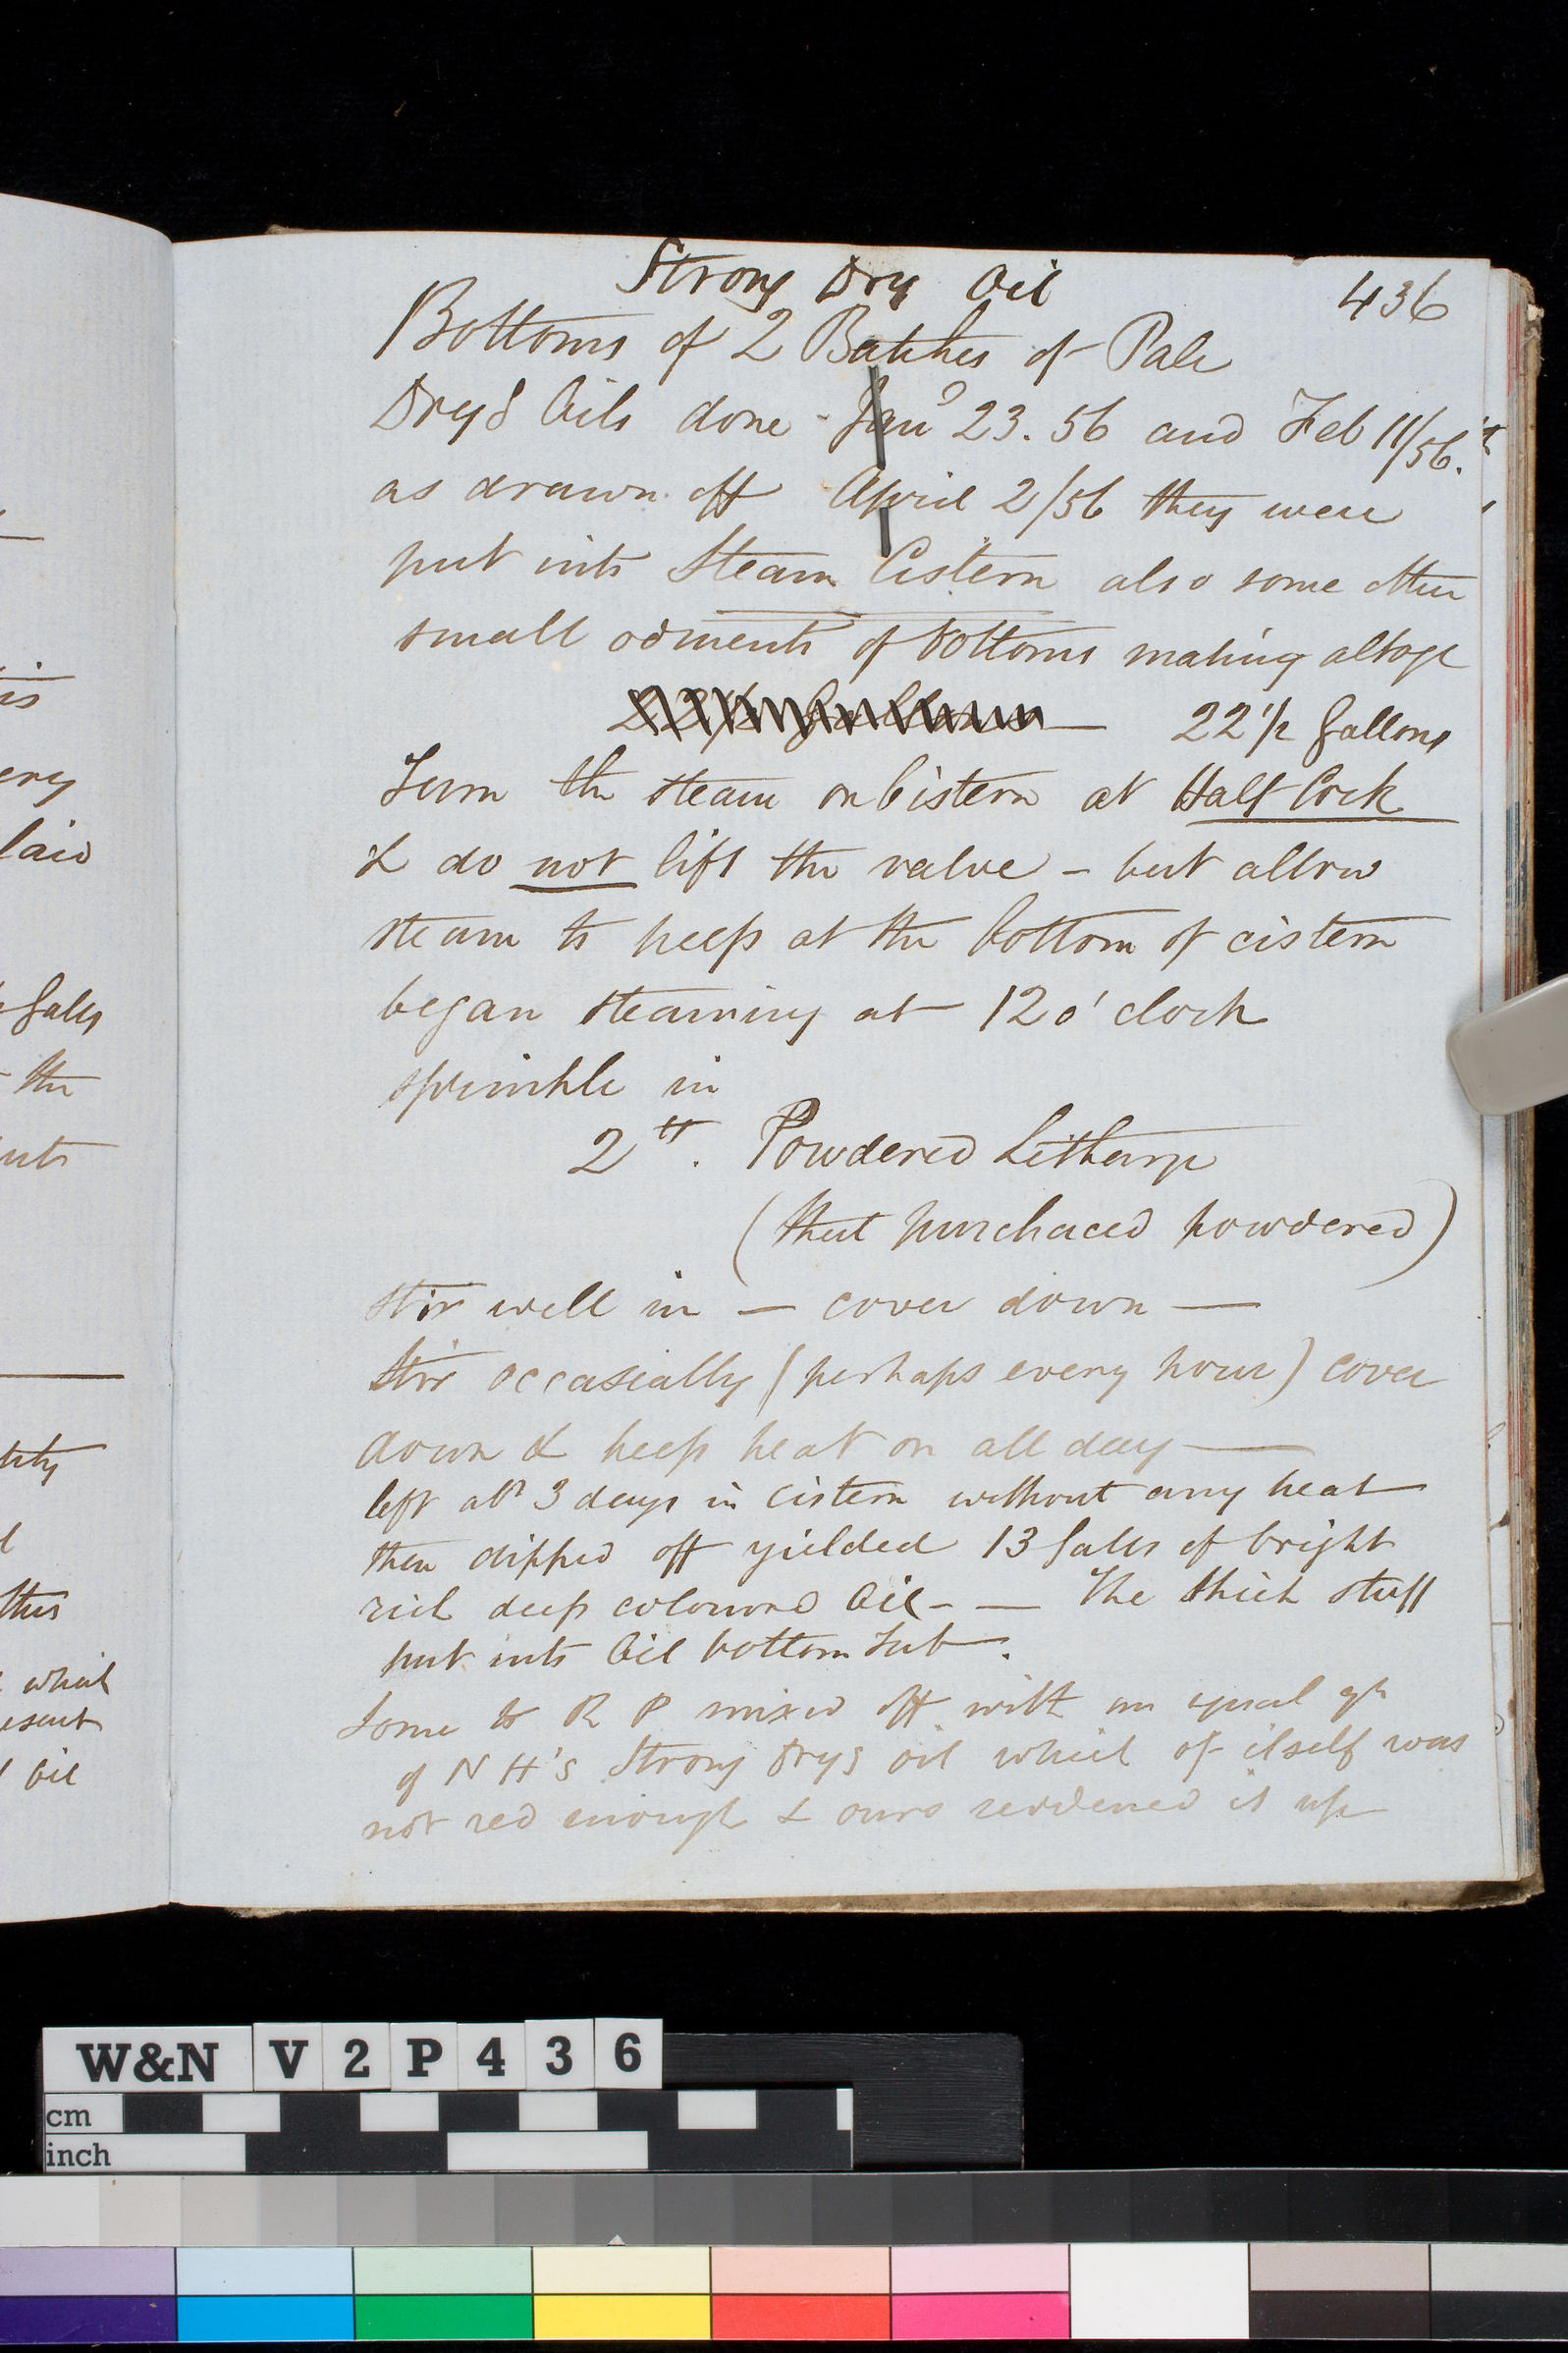 Strong Dry Oil
436
Bottoms of 2 Batches of Pale
Dryg Oils done Jany 23. 56 and Feb 11/56.
as drawn off April 2/56 they were
put into Steam Cistern also some other
small odments of bottoms making altoge
22 1/2 Gallons
Turn the steam on Cistern at Half Cock
& do not lift the valve - but allow
steam to keep at the bottom of cistern
began steaming at 12 o'clock
sprinkle in
2 tt. Powdered Litharge
(that purchaced powdered)
stir well in — cover down —
Stir occasially (perhaps every hour) cover
down & keep heat on all day —
left abt 3 days in cistern without any heat
then dipped off yielded 13 Galls of bright
rich deep coloured Oil - — The thick stuff
put into Oil bottom Tub.
Some to R P mixed off with an equal qy
of N H's Strong Dryg oil which of itself was
not red enough & ours reddened it up
ery
laid
Galls
the
this
which
Oil
W&N V 2 P 4 3 6
cm
inch